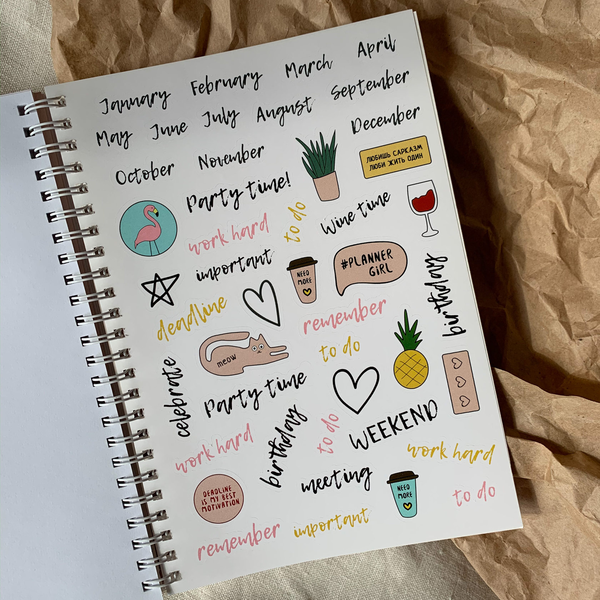 January February March April
May June July August September
October November December
ЛЮБИШЬ САРКАЗМ
ЛЮБИ ЖИТЬ ОДИН
Party time!
work hard
to do
Wine time
important
NEED
MORE
#PLANNER
GIRL
birthday
deadline
remember
meow
to do
celebrate
Party time
birthday
to do
WEEKEND
work hard
work hard
meeting
DEADLINE
IS MY BEST
MOTIVATION
NEED
MORE
to do
remember
important